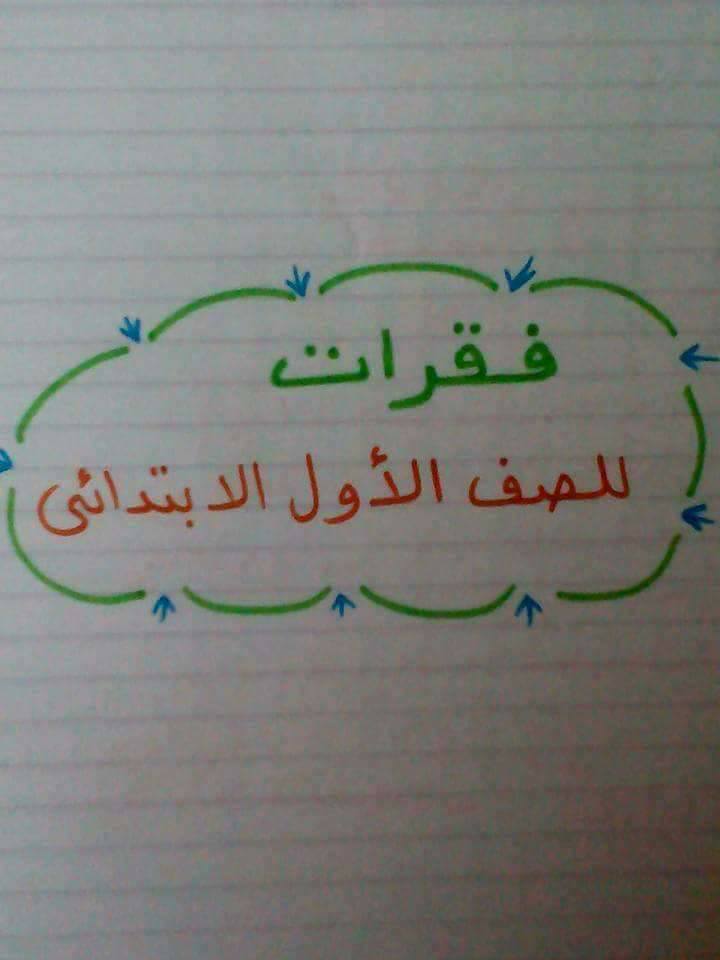 فقرات
للصف الأول الابتدائى